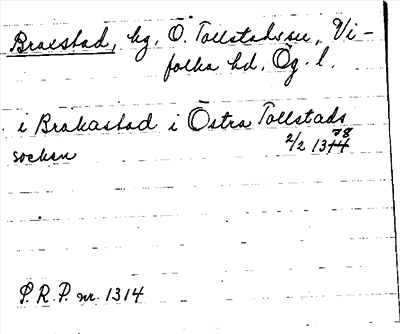 Braestad, hg, Ö. Tollstads sn, Vi-
folka hd, Ög. l.
i Brakastad i Östra Tollstads
socken 2/2 1378
S. R. P. nr. 1314